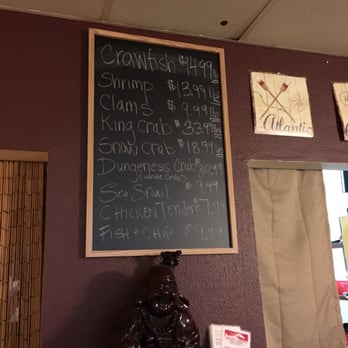 Crawfish $14.99 lb
Shrimp $13.99 lb
Clams $9.99 lb
King Crab $33.99 lb
Snow Crab $18.99
Dungeness Crab
(whole crab)
Sea Snail $9.99
Chicken Tender $7.99
Fish & Chip $9.99
Atlantic